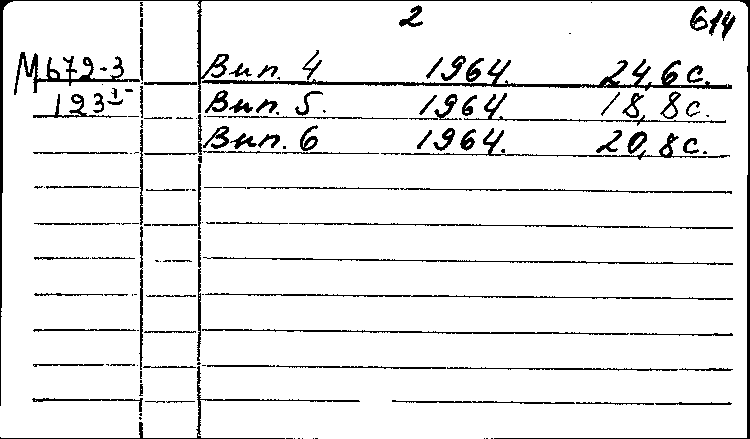 2 614
М672-3 Вип. 4 1964. 24,6 с.
123 Вип. 5. 1964. 18, 8 с.
Вип. 6 1964. 20, 8 с.